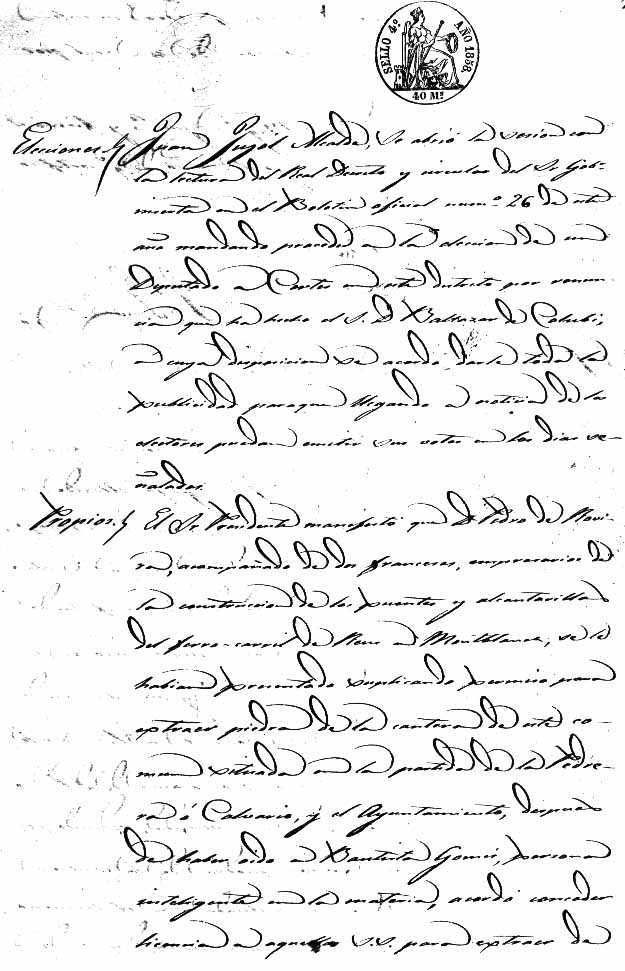 SELLO 4º AÑO 1858
40 Ms
Elecciones. Juan Pujol Alcalde, se abrió la sesion con
la lectura del Real Decreto y circular del Sr Gob-
inserta en el Boletin oficial numº 26 de este
año mandando proceder a la eleccion de un
Diputado a Cortes en este distrito por renun-
cia que ha hecho el S. D Baltazar de
a cuya disposicion se acordó darle toda la
publicidad paraque llegando a noticia de los
electores puedan emitir sus votos en los dias se-
ñalados.
Propios. El Sr Presidente manifestó que D Pedro de Rovi-
ra, acompañado de dos franceses, empresarios de
la construccion de los puentes y alcantarillas
del ferro-carril de Reus a Montblanch, se le
habian presentado suplicando permiso para
extraer piedra de la cantera de este co-
mun situada en la partida de la Pedre-
ra ó Calvario, y el Ayuntamiento, despues
de haber oido a Bautista persona
inteligente en la materia, acordó conceder
licencia a aquellos S.S. para extraer de